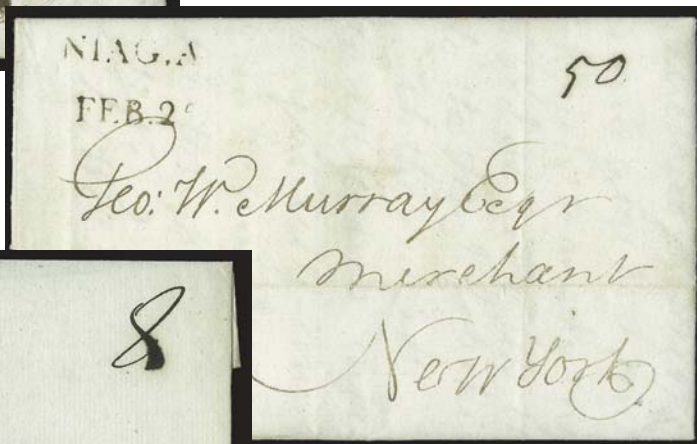 NIAG.A
50
FEB.2
Geo: W. Murray Esqr
merchant
New York
8